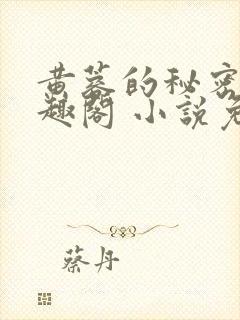 黄蓉的秘密
趣阁 小说免
蔡丹